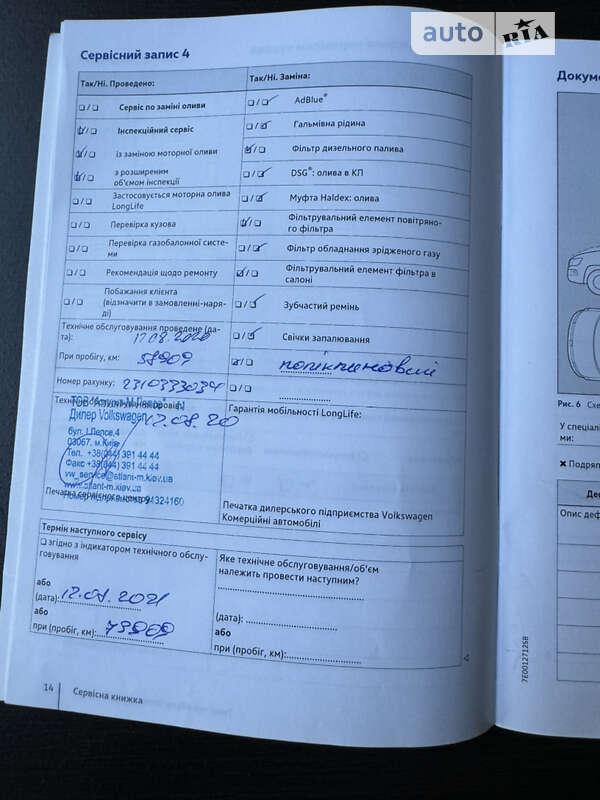 auto RIA
Сервісний запис 4
Так/Ні. Проведено:
Так/Ні. Заміна:
Сервіс по заміні оливи
AdBlue®
Інспекційний сервіс
Гальмівна рідина
із заміною моторної оливи
Фільтр дизельного палива
з розширеним
об'ємом інспекції
DSG®: олива в КП
Застосовується моторна олива
LongLife
Муфта Haldex: олива
Перевірка кузова
Фільтрувальний елемент повітряно-
го фільтра
Перевірка газобалонної систе-
ми
Фільтр обладнання зрідженого газу
Рекомендація щодо ремонту
Фільтрувальний елемент фільтра в
салоні
Побажання клієнта
(відзначити в замовленні-наря-
ді)
Зубчастий ремінь
Технічне обслуговування проведене (да-
та): 17.08.2020
Свічки запалювання
При пробігу, км: 58909
поліклиновий
Номер рахунку: 2310333034
Гарантія мобільності LongLife:
Дилер Volkswagen
17.08.20
бул. І.Лепсе,4
03067, м.Київ
Тел. +38(044) 391 44 44
Факс +38(044) 391 44 44
vw_service@atlant-m.kiev.ua
www.atlant-m.kiev.ua
Печатка сервісного центру
94324160
Печатка дилерського підприємства Volkswagen
Комерційні автомобілі
Термін наступного сервісу
згідно з індикатором технічного обслу-
говування
Яке технічне обслуговування/об'єм
належить провести наступним?
або
(дата): 17.08.2021
або
при (пробіг, км): 73909
(дата):
або
при (пробіг, км):
14 Сервісна книжка
7E0012712SB
Докуме
Рис. 6 Схе
У спеціал
ми:
× Подряп
Де
Опис деф